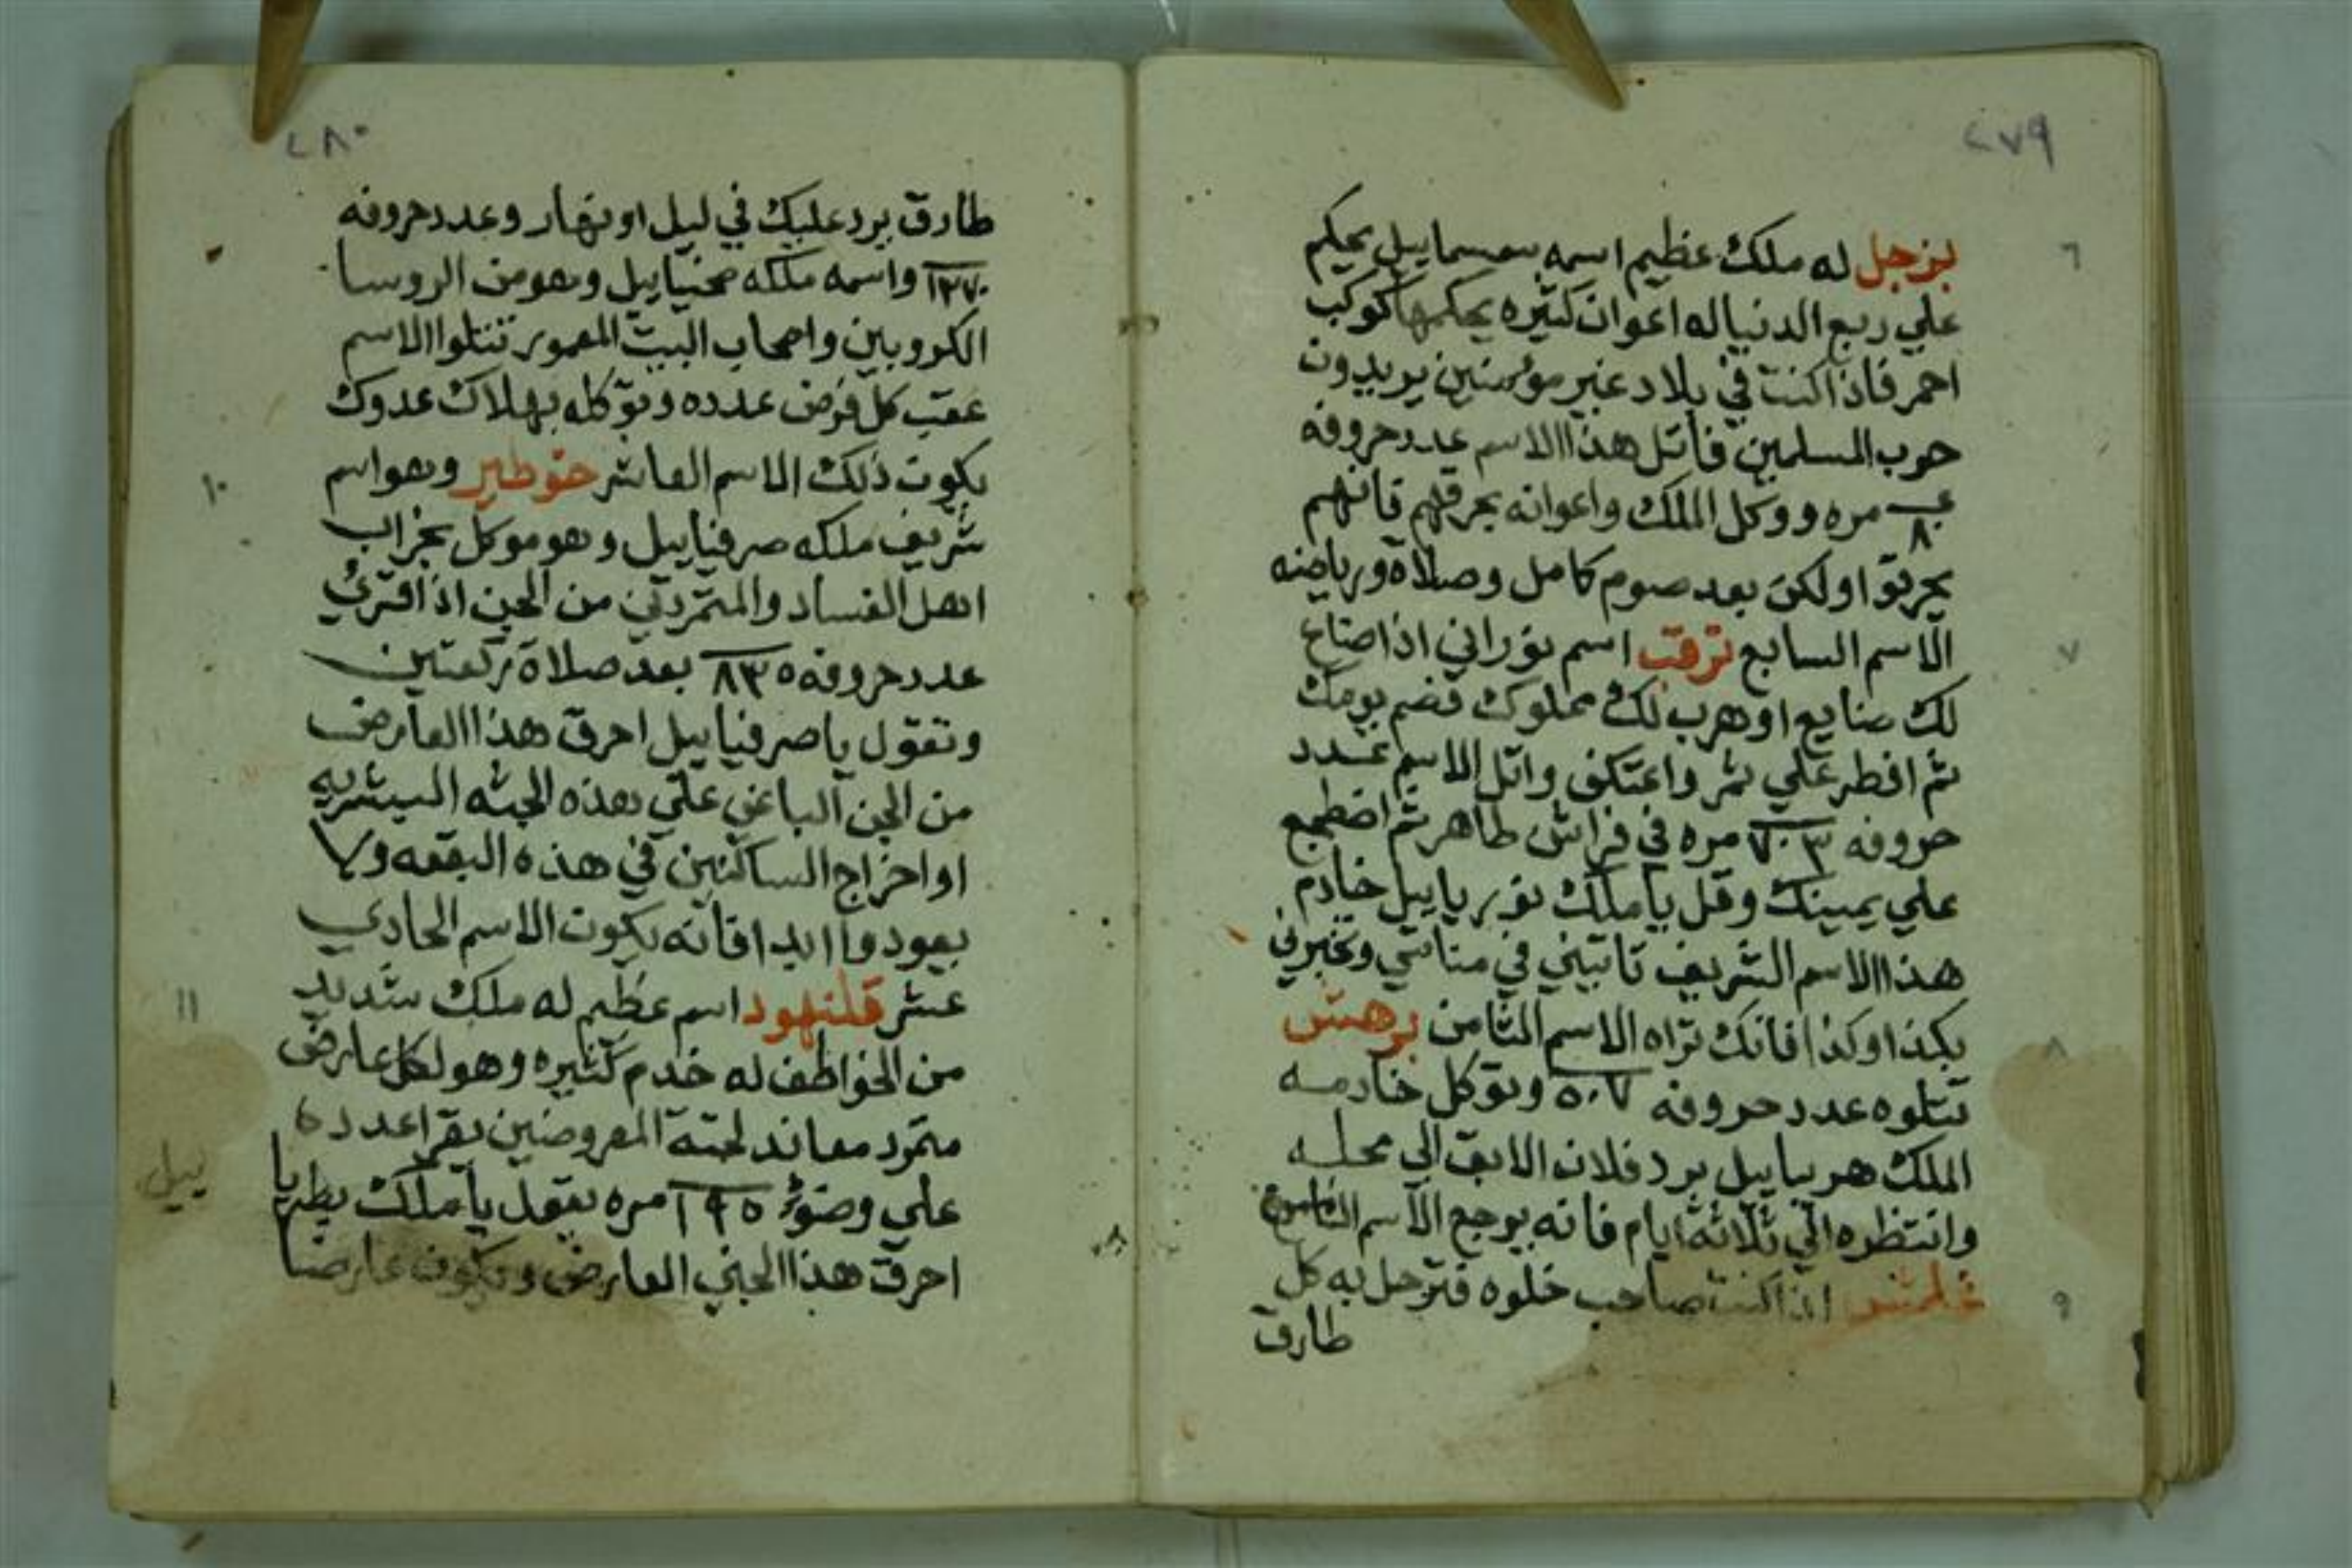 ٢٧٩
بزجل له ملك عظيم اسمه سمسماييل يحكم
٦
علي ربع الدنيا له اعوان كثيره يحكمها كوكب
احمر فاذا كنت في بلاد غير مؤمنين يريدون
حرب المسلمين فاتل هذا الاسم عدد حروفه
مره ووكل الملك واعوانه بحرقهم فانهم
يحرقوا ولكن بعد صوم كامل وصلاة ورياضه
الاسم السابع ترقب اسم نوراني اذا ضاع
٧
لك ضايع او هرب لك مملوك فصم يومك
ثم افطر علي تمر واعتكف واتل الاسم عدد
حروفه ٧٠٣ مره في فراش طاهر ثم اضطجع
علي يمينك وقل يا ملك نورياييل خادم
هذا الاسم الشريف تاتيني في منامي وتخبرني
بكذا وكذا فانك تراه الاسم الثامن برهش
٨
تتلوه عدد حروفه ٥٠٧ وتوكل خادمه
الملك هرياييل يرد فلان الابق الي محله
وانتظره الي ثلاثة ايام فانه يرجع الاسم التاسع
غلمش اذا كنت صاحب خلوه فتزجل به كل
٩
طارق
٢٨٠
طارق يرد عليك في ليل او نهار وعدد حروفه
١٣٧٠ واسمه ملكه صحنياييل وهو من الروسا
الكروبين واصحاب البيت المعمور تتلوا الاسم
عقب كل فرض عدده وتوكله بهلاك عدوك
يكون ذلك الاسم العاشر خوطير وهو اسم
١٠
شريف ملكه صرفياييل وهو موكل بخراب
اهل الفساد والمتمردين من الجن اذا قرئ
عدد حروفه ٨٣٥ بعد صلاة ركعتين
وتقول يا صرفياييل احرق هذا العارض
من الجن الباغي علي هذه الجثه البشريه
او اخراج الساكنين في هذه البقعه ولا
يعودوا ابدا فانه يكون الاسم الحادي
عشر قلنهود اسم عظيم له ملك شديد
١١
من الخواطف له خدم كثيره وهو لكل عارض
متمرد معاند لجثة المعروضين تقرا عدده
علي وضوء ١٩٥ مره تقول يا ملك يطريا
ييل
احرق هذا الجني العارض ويكون عارضا